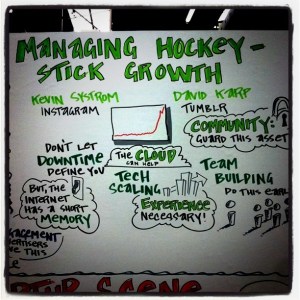 MANAGING HOCKEY-
STICK GROWTH
KEVIN SYSTROM
INSTAGRAM
DAVID KARP
TUMBLR
COMMUNITY:
GUARD THIS ASSET
DON'T LET
DOWNTIME
DEFINE YOU
THE CLOUD
CAN HELP
BUT, THE
INTERNET
HAS A SHORT
MEMORY
TECH
SCALING
EXPERIENCE
NECESSARY!
TEAM
BUILDING
DO THIS EARLY
THIS
SCENE